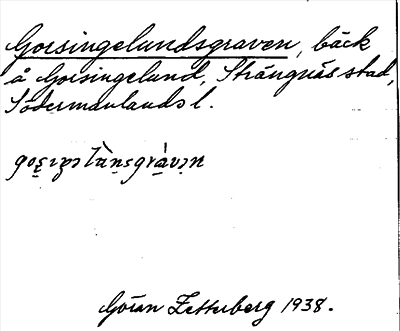 Gorsingelundsgraven, bäck
å Gorsingelund, Strängnäs stad,
Södermanlands l.
Göran Zetterberg 1938.